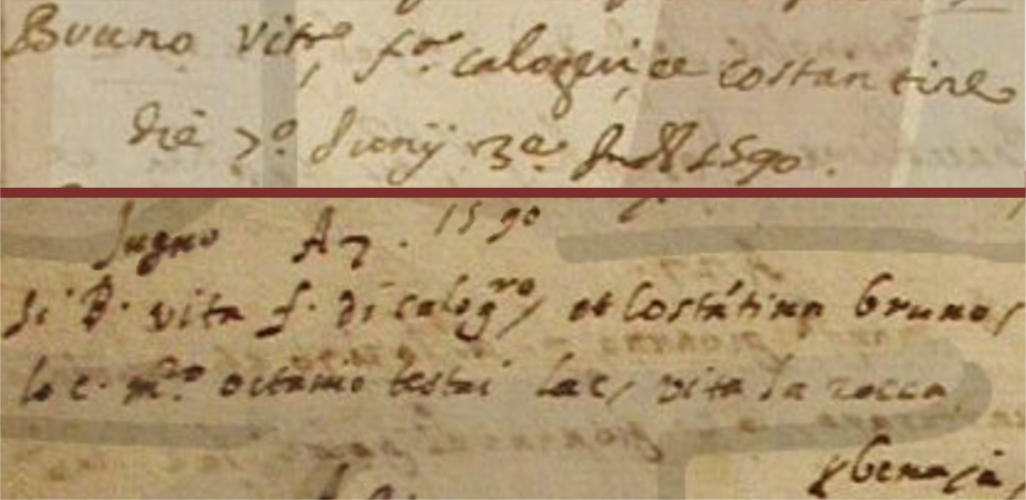 Bruno vitę fª calogeri et costantine
die 7º Junij 3ª Ind 1590.
Jugno A 7. 1590
Si B. vita f. di calogro, et Costãtina bruno,
lo c. mro ottavio testai la c, vita la rocca